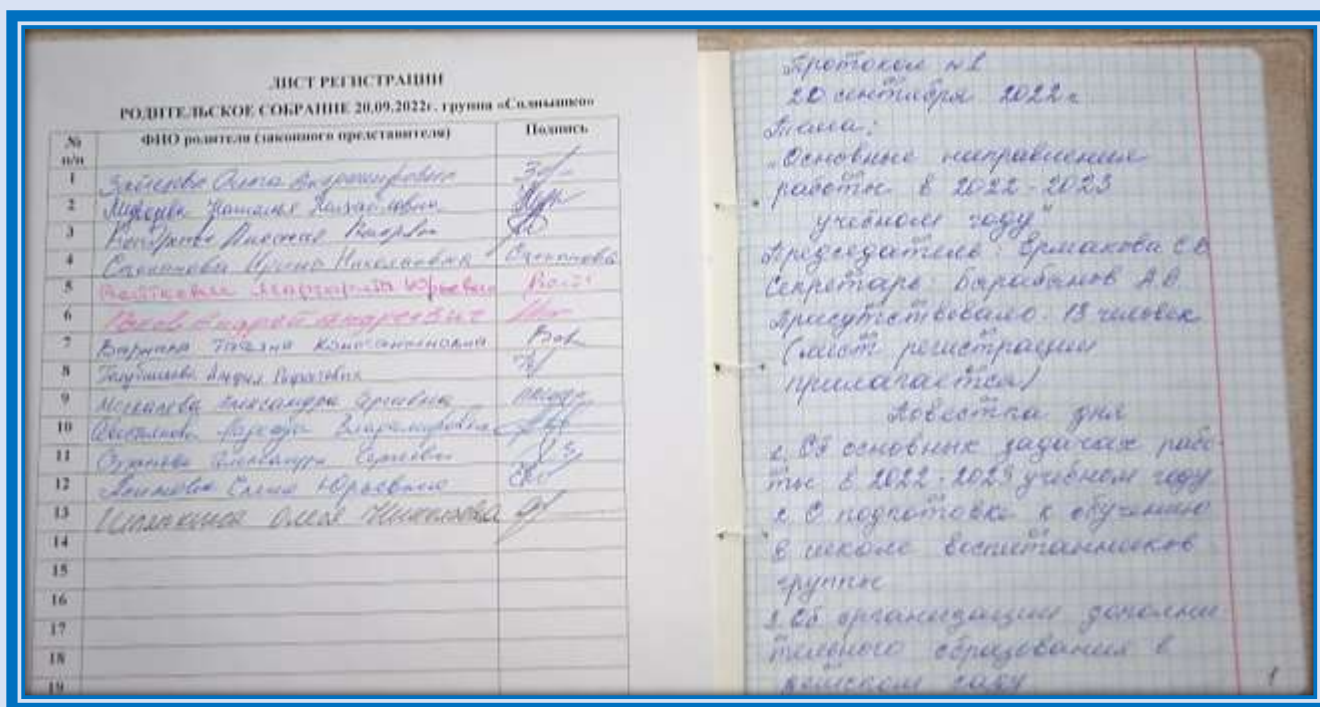 ЛИСТ РЕГИСТРАЦИИ
РОДИТЕЛЬСКОЕ СОБРАНИЕ 20.09.2022г. группа «Солнышко»
№ п/п ФИО родителя (законного представителя) Подпись
1 Зайцева Ольга
2 Наталья
3
4 Степанова Ирина Николаевна Степанова
5 Войткевич Маргарита Юрьевна Войт
6 Андрей Андреевич
7 Варнина Татьяна Константиновна Вар
8
9 Москалева Александра Сергеевна
10 Владимировна
11 Александра Сергеевна
12 Елена Юрьевна
13 Олеся Николаевна
14
15
16
17
18
19
Протокол №1
20 сентября 2022 г
Тема:
"Основные направления
работы в 2022-2023
учебном году"
Председатель Ермакова С.В.
Секретарь: Барабанов А.В.
Присутствовало: 13 человек
(лист регистрации
прилагается)
Повестка дня
1. Об основных задачах рабо-
ты в 2022-2023 учебном году
2. О подготовке к обучению
в школе воспитанников
группы
3. Об организации дополни
тельного образования в
детском саду
1